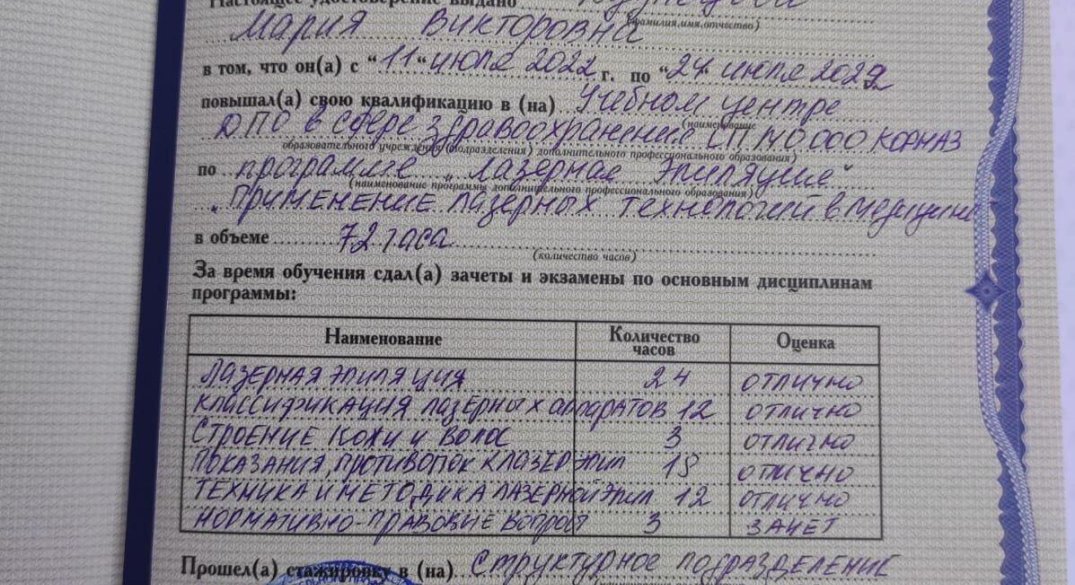 Настоящее удостоверение выдано
(фамилия, имя, отчество)
Мария Викторовна
в том, что он(а) с "11" июля 2022 г. по "24" июля 2022
повышал(а) свою квалификацию в (на) Учебном центре
(наименование
ДПО в сфере здравоохранения СП МО ООО КОРМАЗ
образовательного учреждения (подразделения) дополнительного профессионального образования)
по программе „Лазерная эпиляция"
(наименование программы дополнительного профессионального образования)
„Применение лазерных технологий в медицине
в объеме 72 часа
(количество часов)
За время обучения сдал(а) зачеты и экзамены по основным дисциплинам
программы:
Наименование Количество часов Оценка
Лазерная эпиляция 24 отлично
Классификация лазерных аппаратов 12 отлично
Строение кожи и волос 3 отлично
Показания, противопок к лазер эпил 18 отлично
Техника и методика лазерной эпил 12 отлично
Нормативно-правовые вопросы 3 зачет
Прошел(а) стажировку в (на) Структурное подразделение